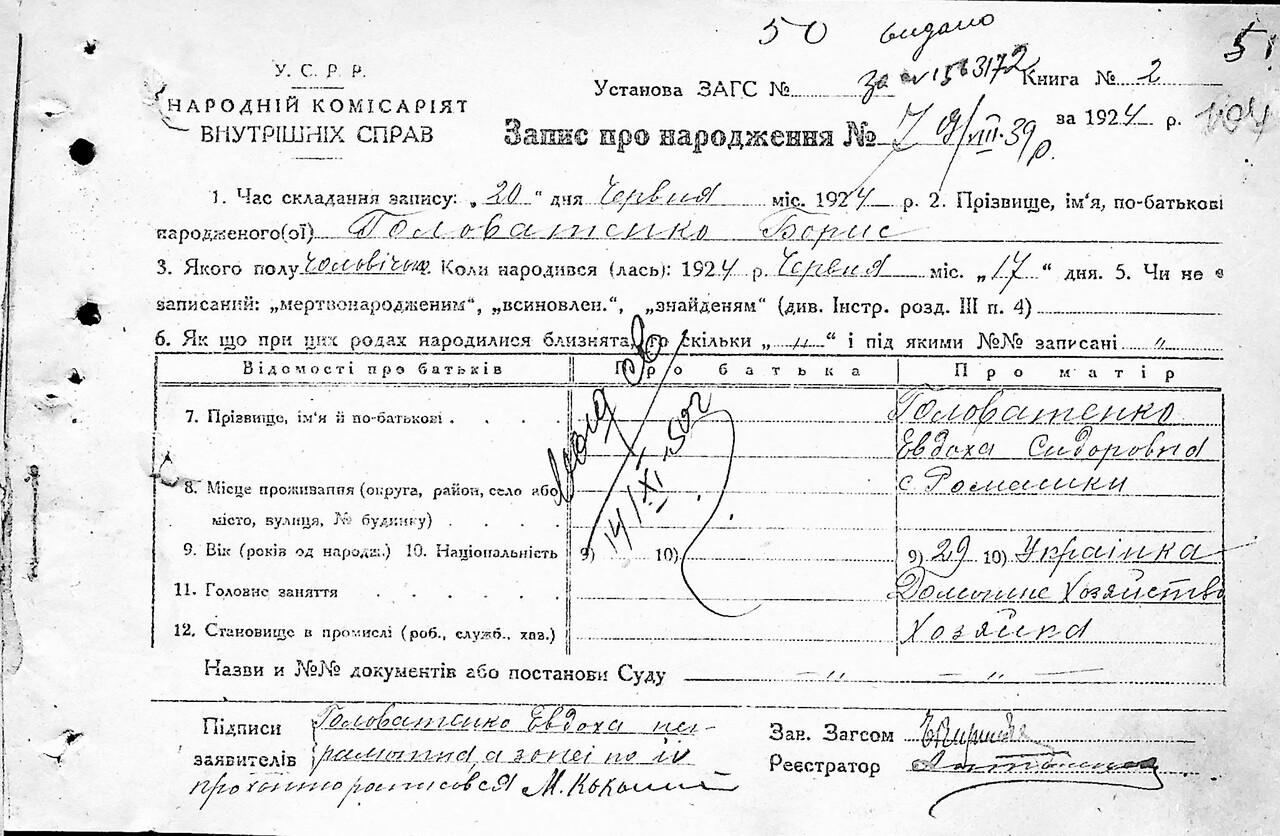 50 видано 51
У. С. Р. Р.
НАРОДНІЙ КОМІСАРІЯТ
ВНУТРІШНІХ СПРАВ
Установа ЗАГС № за № 1563172 Книга № 2
Запис про народження № 7 9/VIII-39р. за 1924 р. 104
1. Час складання запису: „20“ дня Червня міс. 1924 р. 2. Прізвище, ім'я, по-батькові
народженого(ої) Головатенко Борис
3. Якого полу чоловічого. Коли народився (лась): 1924 р. Червня міс. „17“ дня. 5. Чи не є
записаний: „мертвонародженим“, „всиновлен.“, „знайденям“ (див. Інстр. розд. III п. 4)
6. Як що при цих родах народилися близнята, то скільки „ „ “ і під якими №№ записані „
Відомості про батьків Про батька Про матір
7. Прізвище, ім'я й по-батькові . . . . Головатенко
Евдоха Сидоровна
8. Місце проживання (округа, район, село або с. Ромалики
місто, вулиця, № будинку) . . . .
14/XI-50г
9. Вік (років од народж.) 10. Національність 9) 10) 9) 29 10) Украінка
11. Головне заняття . . . . . Домашнє Хозяйство
12. Становище в промислі (роб., служб., хаз.) Хозяйка
Назви и №№ документів або постанови Суду — „ — „ —
Підписи Головатенко Евдоха не-
заявителів грамотна а за неі по іі
расписовся М.
Зав. Загсом
Реєстратор